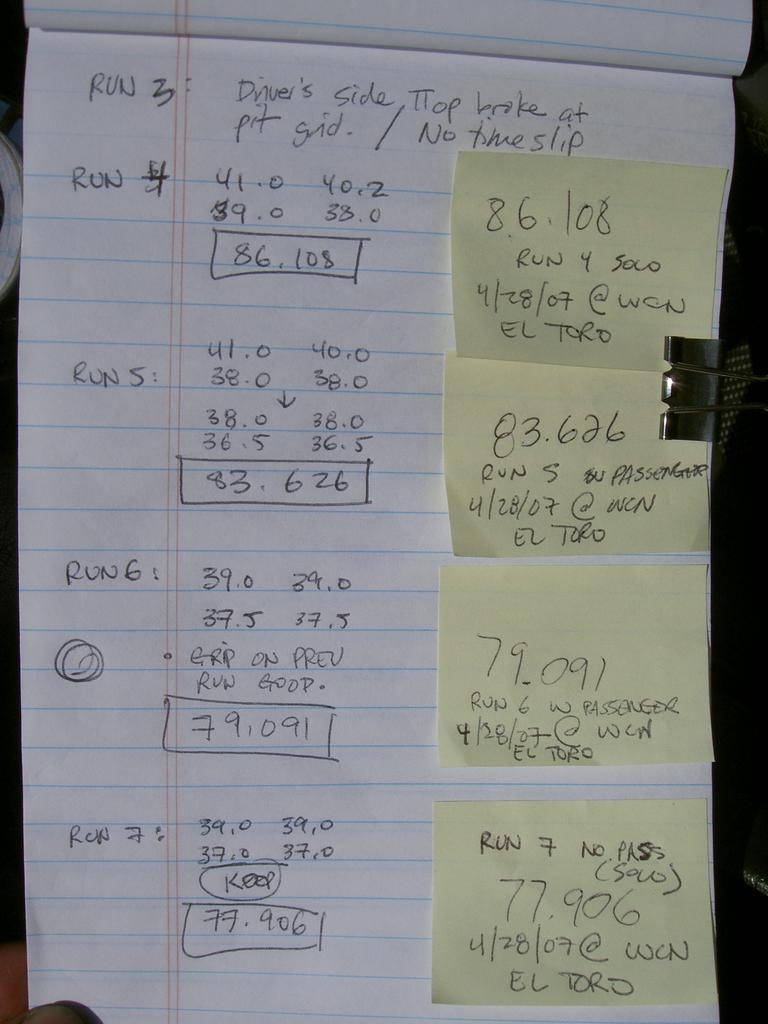 RUN 3: Driver's side, TTop broke at
pit grid. / No time slip
RUN 4 41.0 40.2
39.0 38.0
86.108
RUN 5: 41.0 40.0
38.0 38.0
↓
38.0 38.0
36.5 36.5
83.626
RUN 6: 39.0 39.0
37.5 37.5
• GRIP ON PREV
RUN GOOD.
79.091
RUN 7: 39.0 39.0
37.0 37.0
KEEP
77.906
86.108
RUN 4 SOLO
4/28/07 @ WCN
EL TORO
83.626
RUN 5 W PASSENGER
4/28/07 @ WCN
EL TORO
79.091
RUN 6 W PASSENGER
4/28/07 @ WCN
EL TORO
RUN 7 NO PASS
(SOLO)
77.906
4/28/07 @ WCN
EL TORO